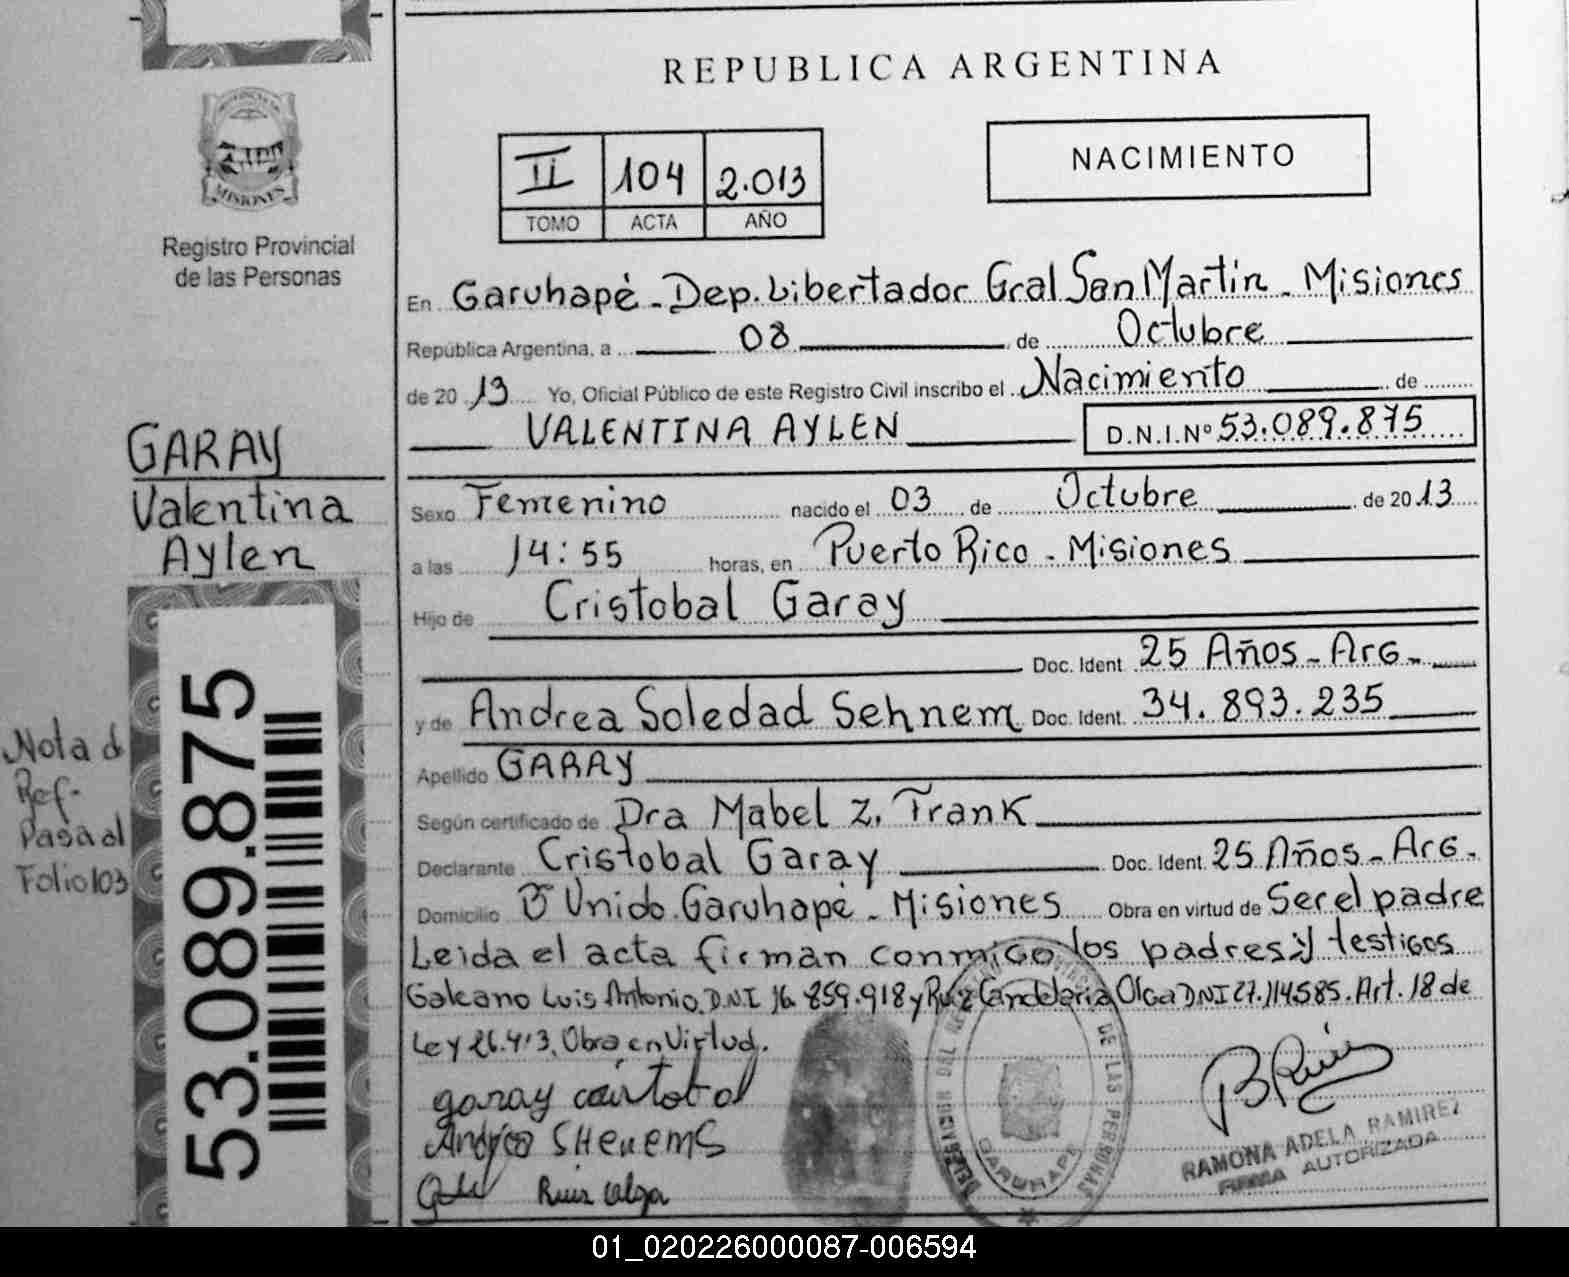 REPUBLICA ARGENTINA
II 104 2.013
TOMO ACTA AÑO
NACIMIENTO
PROVINCIA DE
MISIONES
Registro Provincial
de las Personas
En Garuhapé - Dep. Libertador Gral San Martin - Misiones
República Argentina, a 08 de Octubre
de 2013 Yo, Oficial Público de este Registro Civil inscribo el Nacimiento de
VALENTINA AYLEN D.N.I.Nº 53.089.875
GARAY
Valentina
Aylen
Sexo Femenino nacido el 03 de Octubre de 2013
a las 14:55 horas, en Puerto Rico - Misiones
Hijo de Cristobal Garay
Doc. Ident. 25 Años - Arg -
y de Andrea Soledad Sehnem Doc. Ident. 34.893.235
Apellido GARAY
Según certificado de Dra Mabel Z. Frank
Declarante Cristobal Garay Doc. Ident. 25 Años - Arg -
Domicilio Bº Unido. Garuhapé - Misiones Obra en virtud de Ser el padre
Leida el acta firman conmigo los padres y testigos
Galeano Luis Antonio D.N.I 16.859.918 y Ruiz Candelaria Olga DNI 27.114.585. Art. 18 de
Ley 26.413, Obra en Virtud.
garay cristobal
SHenems
Ruiz olga
DELEGACION DEL REGISTRO PROVINCIAL DE LAS PERSONAS
GARUHAPE
RAMONA ADELA RAMIREZ
FIRMA AUTORIZADA
Nota d
Ref-
Pasa al
Folio 103
53.089.875
01_020226000087-006594